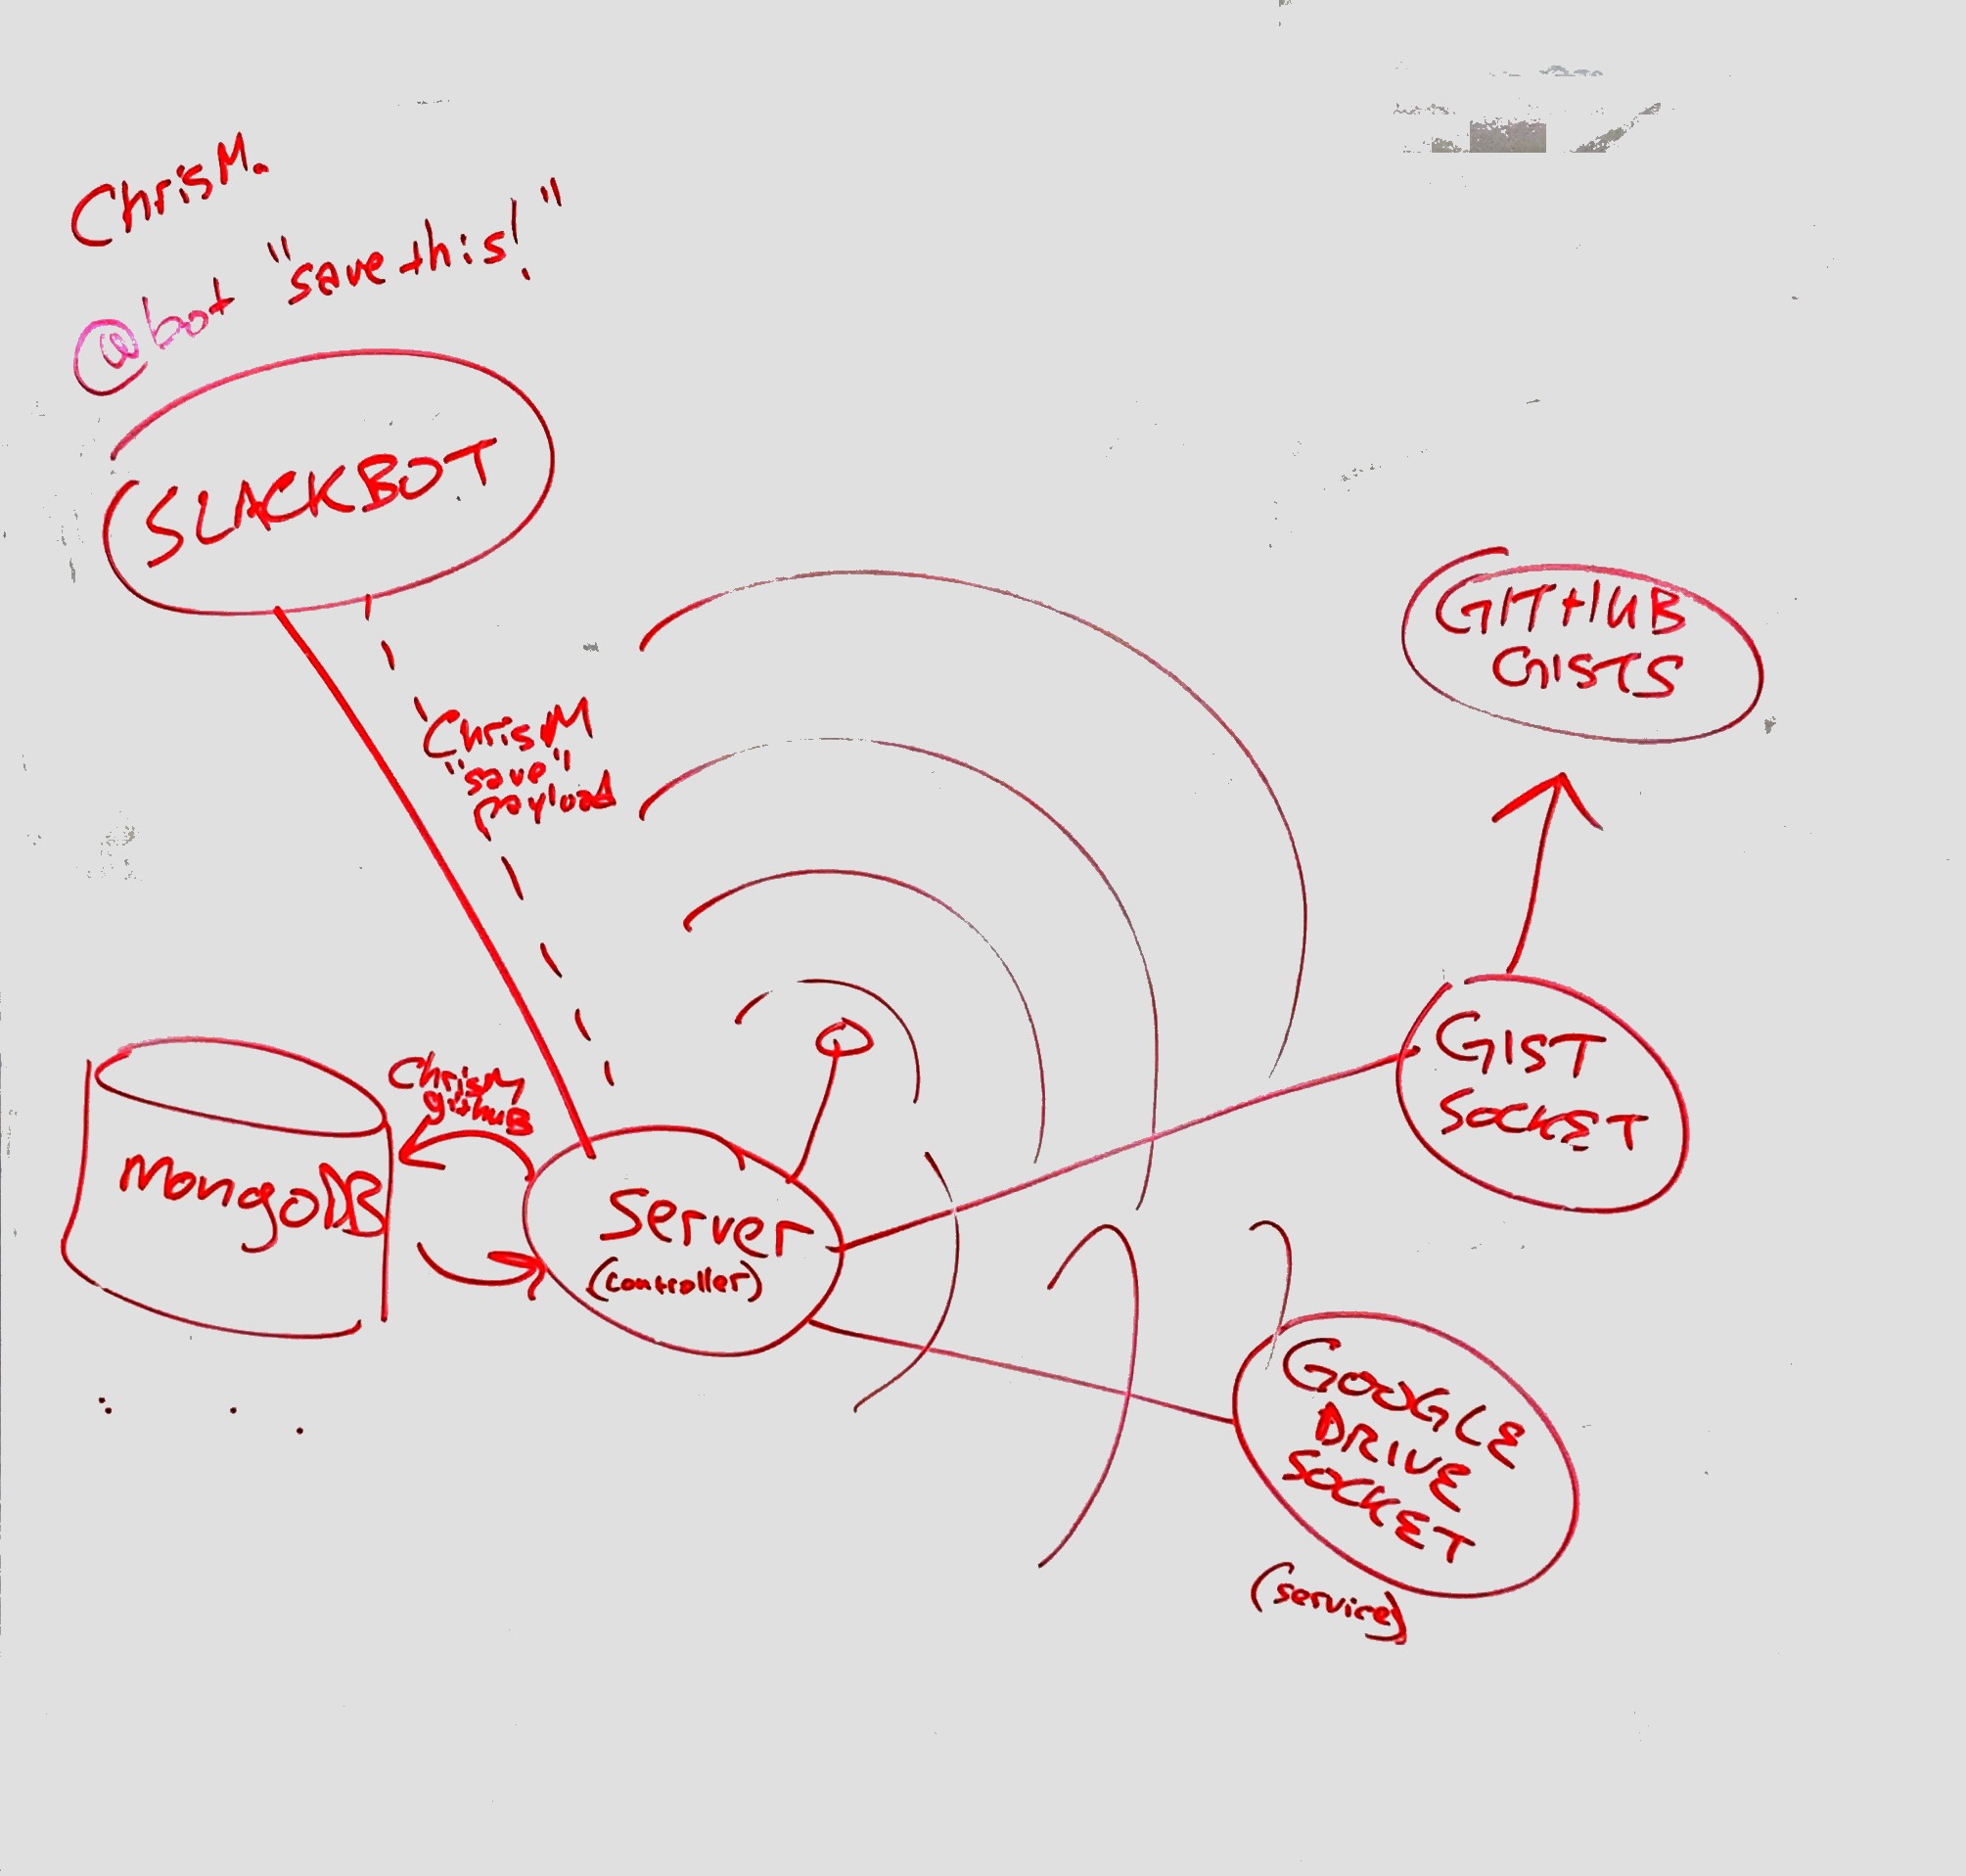 ChrisM.
@bot "save this!"
SLACKBOT
ChrisM
"save"
payload
GITHUB
GISTS
GIST
SOCKET
ChrisM
github
MongoDB
Server
(controller)
GOOGLE
DRIVE
SOCKET
(service)